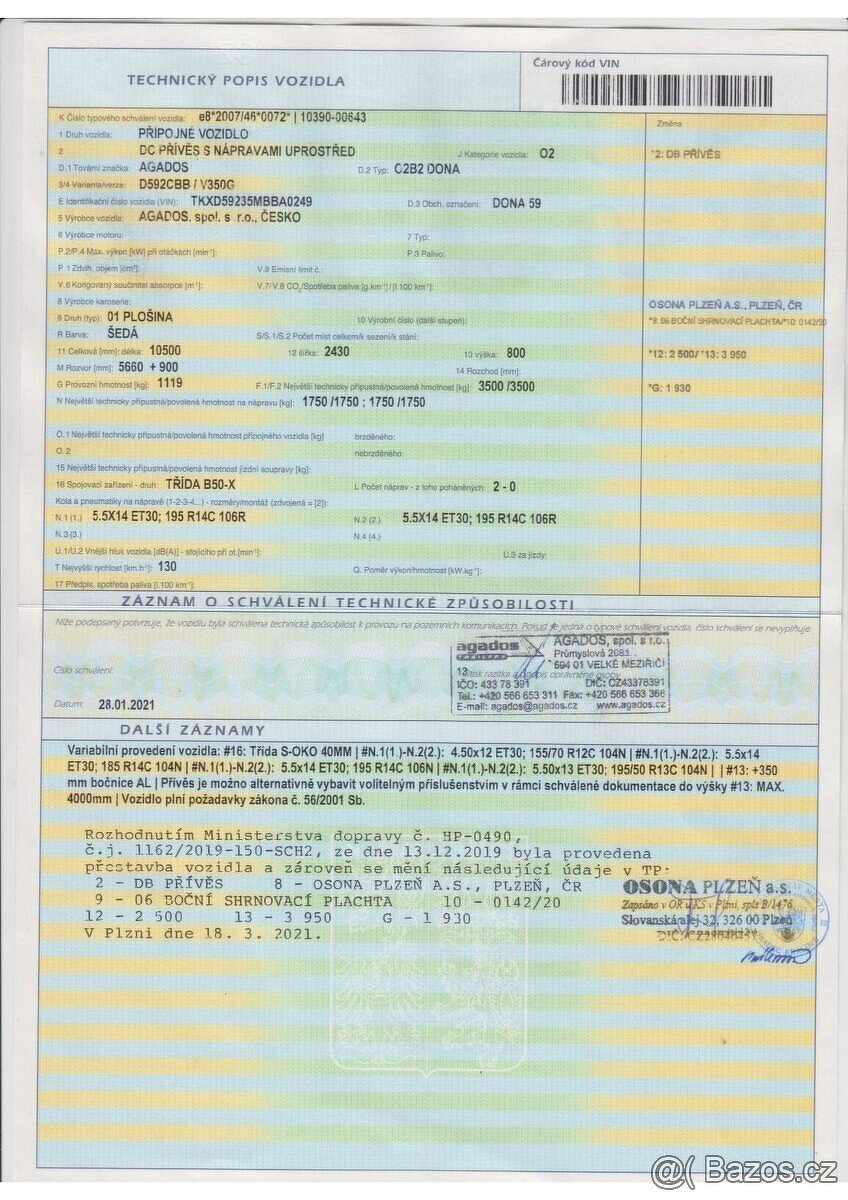 TECHNICKÝ POPIS VOZIDLA
Čárový kód VIN
K Číslo typového schválení vozidla: e8*2007/46*0072* | 10390-00643
Změna
1 Druh vozidla: PŘÍPOJNÉ VOZIDLO
2 DC PŘÍVĚS S NÁPRAVAMI UPROSTŘED J Kategorie vozidla: O2
*2: DB PŘÍVĚS
D.1 Tovární značka: AGADOS D.2 Typ: O2B2 DONA
3/4 Varianta/verze: D592CBB / V350G
E Identifikační číslo vozidla (VIN): TKXD59235MBBA0249 D.3 Obch. označení: DONA 59
5 Výrobce vozidla: AGADOS, spol. s r.o., ČESKO
6 Výrobce motoru: 7 Typ:
P.2/P.4 Max. výkon [kW] při otáčkách [min⁻¹]: P.3 Palivo:
P.1 Zdvih. objem [cm³]: V.9 Emisní limit č.:
V.6 Korigovaný součinitel absorpce [m⁻¹]: V.7/V.8 CO₂/Spotřeba paliva [g.km⁻¹] / [l.100 km⁻¹]:
8 Výrobce karoserie: OSONA PLZEŇ A.S., PLZEŇ, ČR
9 Druh (typ): 01 PLOŠINA 10 Výrobní číslo (další stupeň): *9: 06 BOČNÍ SHRNOVACÍ PLACHTA/*10: 0142/20
R Barva: ŠEDÁ S/S.1/S.2 Počet míst celkem/k sezení/k stání:
11 Celková [mm]: délka: 10500 12 šířka: 2430 13 výška: 800 *12: 2 500/ *13: 3 950
M Rozvor [mm]: 5660 + 900 14 Rozchod [mm]:
G Provozní hmotnost [kg]: 1119 F.1/F.2 Největší technicky přípustná/povolená hmotnost [kg]: 3500 /3500 *G: 1 930
N Největší technicky přípustná/povolená hmotnost na nápravu [kg]: 1750 /1750 ; 1750 /1750
O.1 Největší technicky přípustná/povolená hmotnost přípojného vozidla [kg] brzděného:
O.2 nebrzděného:
15 Největší technicky přípustná/povolená hmotnost jízdní soupravy [kg]:
16 Spojovací zařízení - druh: TŘÍDA B50-X L Počet náprav - z toho poháněných: 2 - 0
Kola a pneumatiky na nápravě (1-2-3-4...) - rozměry/montáž (zdvojená = [2]):
N.1 (1.) 5.5X14 ET30; 195 R14C 106R N.2 (2.) 5.5X14 ET30; 195 R14C 106R
N.3 (3.) N.4 (4.)
U.1/U.2 Vnější hluk vozidla [dB(A)] - stojícího při ot.[min⁻¹]: U.3 za jízdy:
T Nejvyšší rychlost [km.h⁻¹]: 130 Q. Poměr výkon/hmotnost [kW.kg⁻¹]:
17 Předpis. spotřeba paliva [l.100 km⁻¹]:
ZÁZNAM O SCHVÁLENÍ TECHNICKÉ ZPŮSOBILOSTI
Níže podepsaný potvrzuje, že vozidlu byla schválena technická způsobilost k provozu na pozemních komunikacích. Pokud se jedná o typové schválení vozidla, číslo schválení se nevyplňuje.
agados AGADOS, spol. s r.o.
Průmyslová 2081
594 01 VELKÉ MEZIŘÍČÍ
Číslo schválení: 13 otisk razítka a podpis oprávněné osoby
IČO: 433 78 391 DIČ: CZ43378391
Tel.: +420 566 653 311 Fax: +420 566 653 368
E-mail: agados@agados.cz www.agados.cz
Datum: 28.01.2021
DALŠÍ ZÁZNAMY
Variabilní provedení vozidla: #16: Třída S-OKO 40MM | #N.1(1.)-N.2(2.): 4.50x12 ET30; 155/70 R12C 104N | #N.1(1.)-N.2(2.): 5.5x14
ET30; 185 R14C 104N | #N.1(1.)-N.2(2.): 5.5x14 ET30; 195 R14C 106N | #N.1(1.)-N.2(2.): 5.50x13 ET30; 195/50 R13C 104N | | #13: +350
mm bočnice AL | Přívěs je možno alternativně vybavit volitelným příslušenstvím v rámci schválené dokumentace do výšky #13: MAX.
4000mm | Vozidlo plní požadavky zákona č. 56/2001 Sb.
Rozhodnutím Ministerstva dopravy č. HP-0490,
č.j. 1162/2019-150-SCH2, ze dne 13.12.2019 byla provedena
přestavba vozidla a zároveň se mění následující údaje v TP:
2 - DB PŘÍVĚS 8 - OSONA PLZEŇ A.S., PLZEŇ, ČR
9 - 06 BOČNÍ SHRNOVACÍ PLACHTA 10 - 0142/20
12 - 2 500 13 - 3 950 G - 1 930
V Plzni dne 18. 3. 2021.
OSONA PLZEŇ a.s.
Zapsáno v OR u KS v Plzni, spis B/1476
Slovanská alej 32, 326 00 Plzeň
@( Bazos.cz